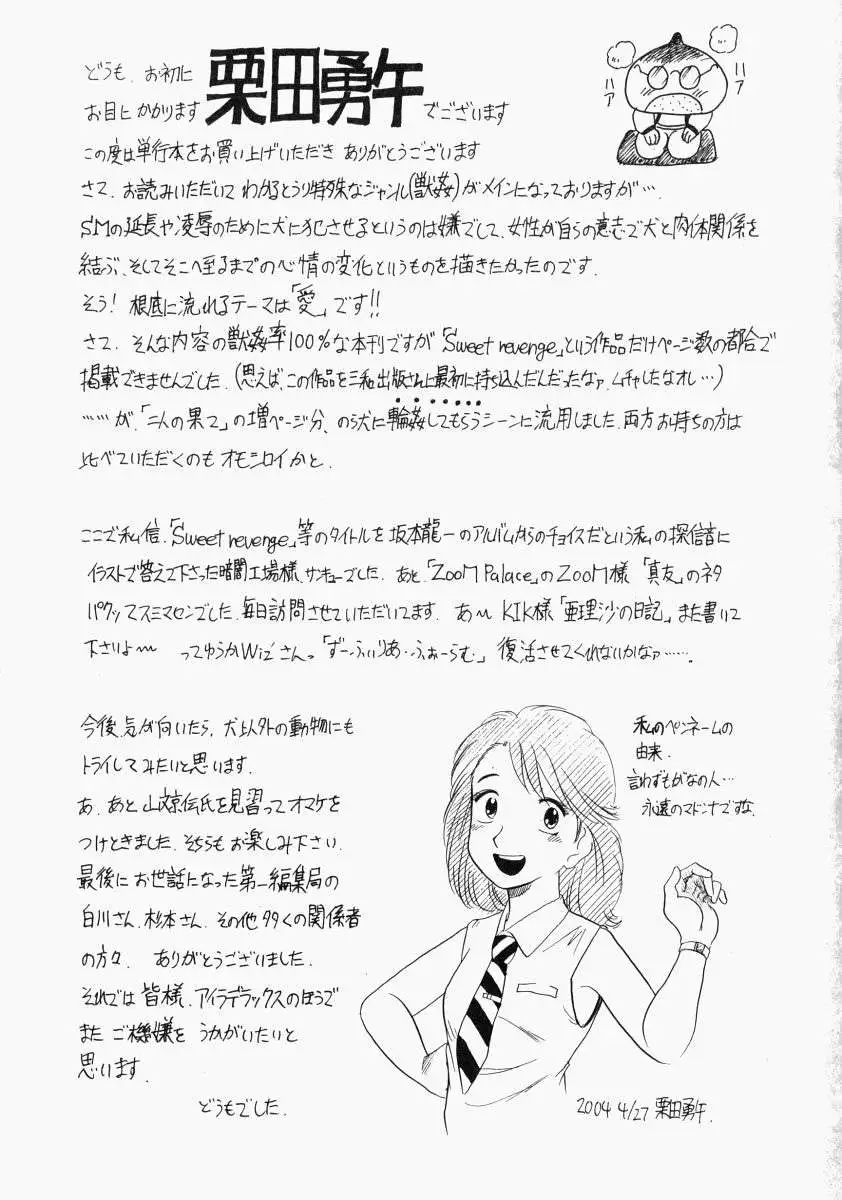 どうも、お初に
お目にかかります 栗田勇午 でございます
ハア
ハア
この度は単行本をお買い上げいただき ありがとうございます
さて、お読みいただいて わかるとうり特殊なジャンル(獣姦)がメインになっておりますが…、
SMの延長や凌辱のために犬に犯させるというのは嫌でして、女性が自らの意志で犬と肉体関係を
結ぶ、そしてそこへ至るまでの心情の変化というものを描きたかったのです.
そう! 根底に流れるテーマは「愛」です!!
さて、そんな内容の獣姦率100%な本刊ですが「Sweet revenge」という作品だけページ数の都合で
掲載できませんでした.(思えば、この作品を三和出版さんに最初に持ち込んだんだったなァ.ムチャしたなオレ…)
……が、「二人の果て」の増ページ分、のら犬に輪姦してもらうシーンに流用しました.両方お持ちの方は
比べていただくのも オモシロイかと.
ここで私信.「Sweet revenge」等のタイトルを坂本龍一のアルバムからのチョイスだという私の探信音に
イラストで答えて下さった暗闇工場様、サンキューでした. あと「ZooM Palace」のZooM様 「真友」のネタ
パクッてスミマセンでした.毎日訪問させていただいてます. あ〜 KIK様「亜理沙の日記」また書いて
下さいよ〜 ってゆうかWiz'さんっ「ずーふぃりあ・ふぉーらむ」 復活させてくれないかなァ…….
今後、気が向いたら、犬以外の動物にも
トライしてみたいと思います.
あ.あと 山文京伝氏を見習って オマケを
つけときました.そちらも お楽しみ下さい.
最後に お世話になった 第一編集局の
白川さん、杉本さん、その他 多くの関係者
の方々. ありがとうございました.
それでは 皆様、アイラデラックスのほうで
また ご機嫌を うかがいたいと
思います.
どうもでした.
私のペンネームの
由来.
言わずもがなの人…
永遠のマドンナですな.
2004 4/27 栗田勇午.